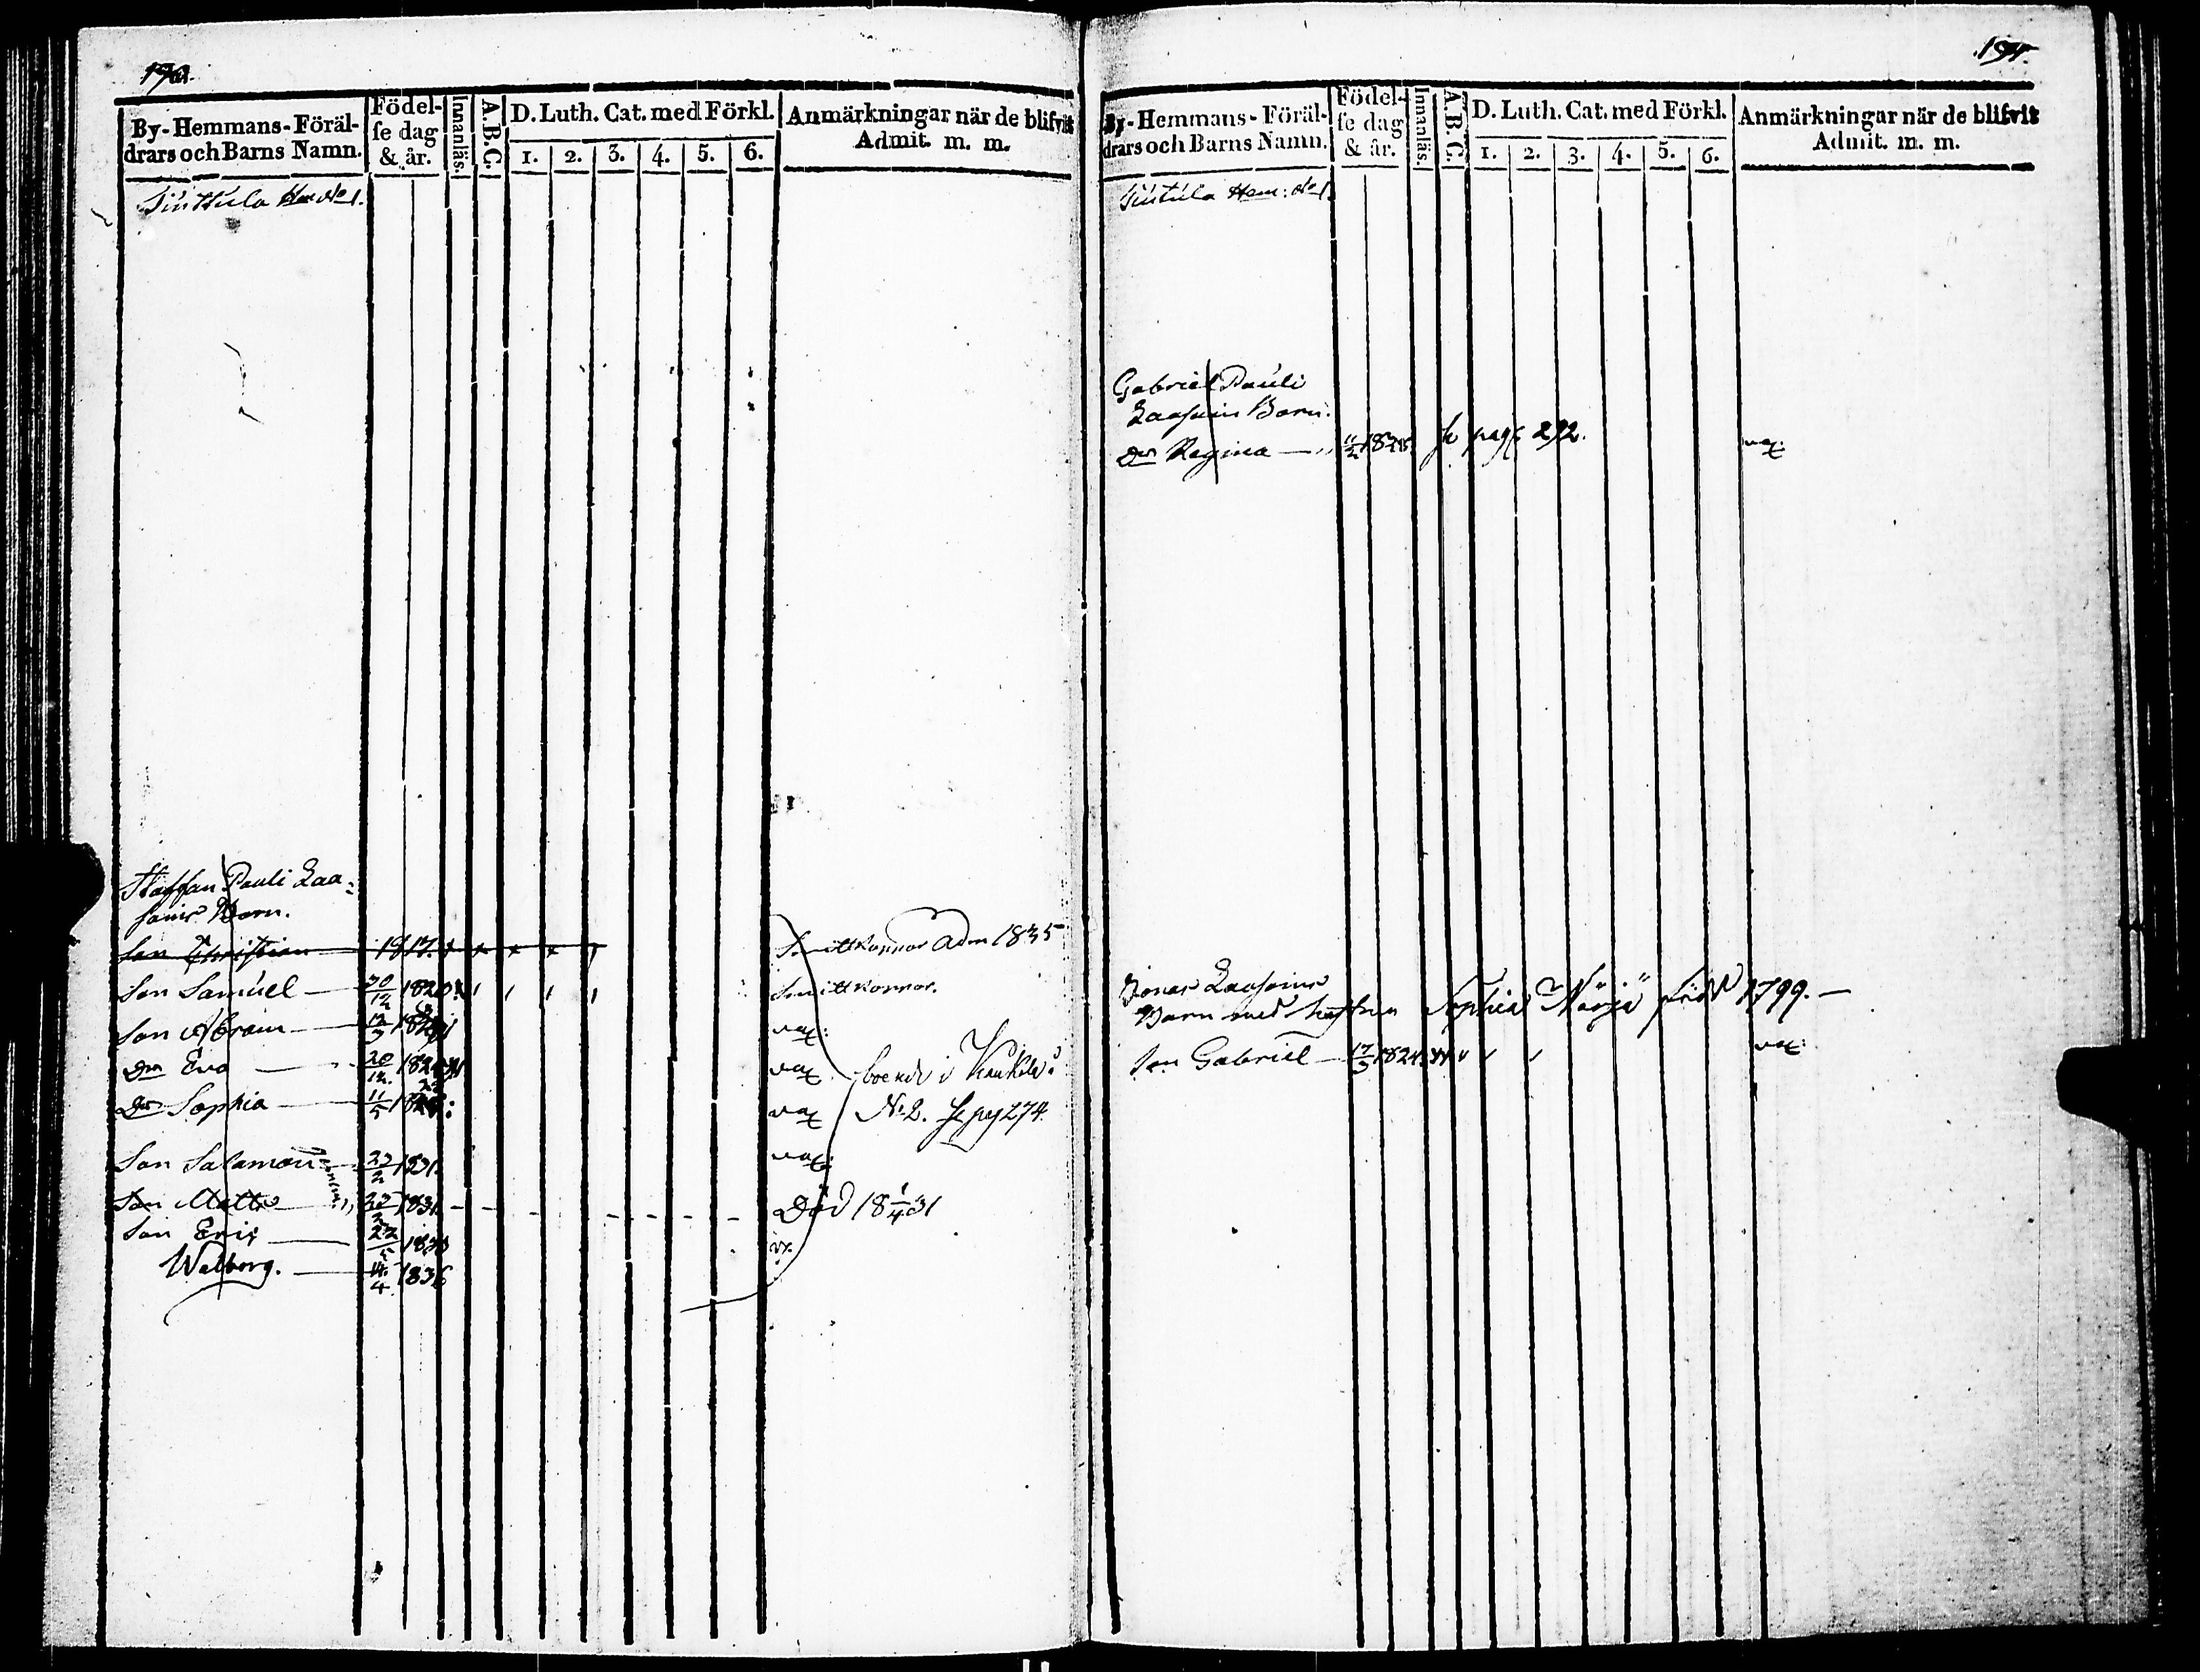 190.
By-Hemmans-Föräl-
drars och Barns Namn.
Födel-
se dag
& år.
Innanläs.
A.B.C.
D. Luth. Cat. med Förkl.
1. 2. 3. 4. 5. 6.
Anmärkningar när de blifvit
Admit. m. m.
Tinttula Hem No 1.
Staffan Pauli Laa-
sanis Barn.
Son Christian 1817. Smittkoppor Adm 1835
Son Samuel 30/12 1820 Smittkoppor.
Son Abram 12/3 vac:
Dr Eva 20/12 vac boende i Kaukola
Dr Sophia 11/5 vac No 2. Se pag 274
Son Salamon 22/2 1831. vac:
Son Matts 22/2 1831 Död 18 1/4 31
Son Eric 22/5 v.
Walborg. 14/4 1836
191.
By-Hemmans-Föräl-
drars och Barns Namn.
Födel-
se dag
& år.
Innanläs.
A.B.C.
D. Luth. Cat. med Förkl.
1. 2. 3. 4. 5. 6.
Anmärkningar när de blifvit
Admit. m. m.
Tintula Hem: No 1.
Gabriel Pauli
Laasanis Barn.
Dr Regina 11/2 se page 292. vac:
Jonas Laasanis
Barn med hustrun Sophia Närjä född 1799.
Son Gabriel 17/3 1824 vac: